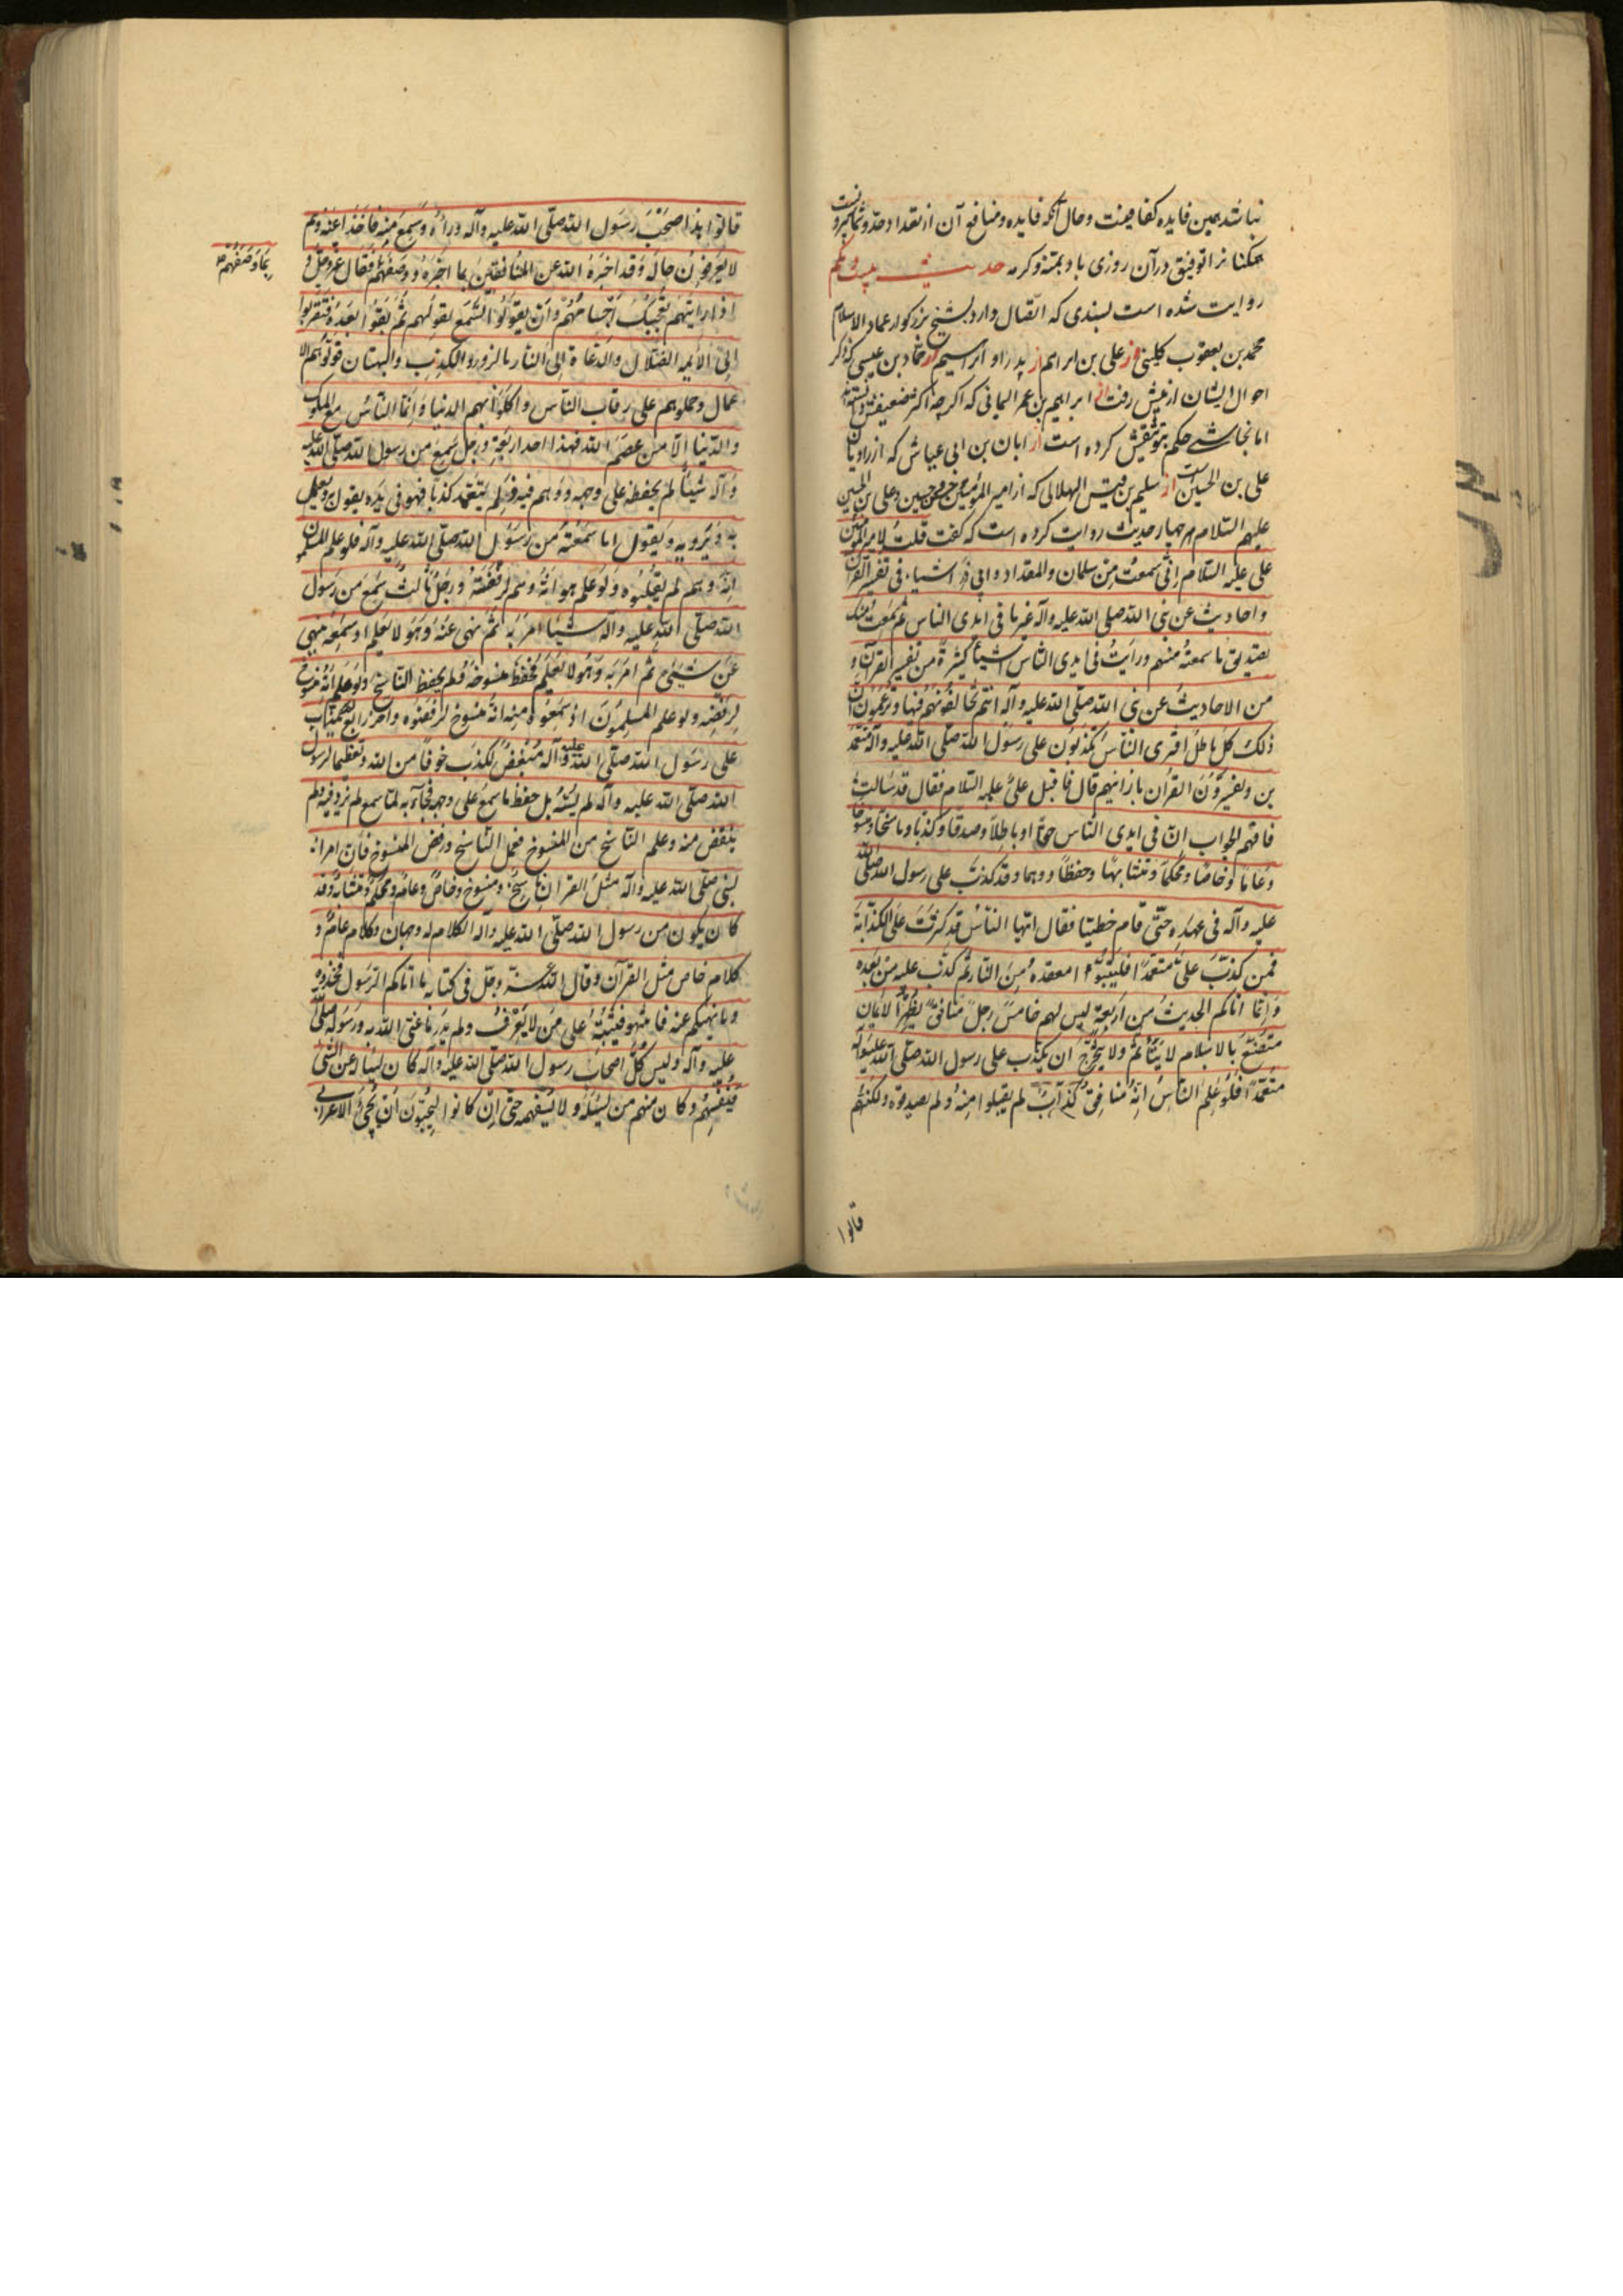 نباشد همین فایده کفا یعنت و حال آنکه فایده و منافع آن از تعداد حد و شمار بیرونست
همکنانرا توفیق در آن روزی باد بمنه و کرمه حدیث بیست و یکم
روایت شده است بسندی که اتصال دارد بشیخ بزرکوار عماد الاسلام
محمد بن یعقوب کلینی و از علی بن ابراهیم از پدر او ابراهیم از حماد بن عیسی که ذکر
احوال ایشان از پیش رفت از ابراهیم بن عمر الیمانی که اگرچه اکثر تضعیفش دانسته اند
اما نجاشی حکم بتوثیقش کرده است از ابان بن ابی عیاش که از راویان
علی بن الحسین است از سلیم بن قیس الهلالی که از امیر المؤمنین و حسن و حسین و علی بن الحسین
علیهم السلام هر چهار حدیث روایت کرده است که گفت قلت لامیر المؤمنین
علی علیه السلام انی سمعت من سلمان والمقداد وابی ذر اشیاء فی تفسیر القرآن
و احادیث عن نبی الله صلی الله علیه وآله غیر ما فی ایدی الناس ثم سمعت منک
تصدیق ما سمعته منهم ورأیت فی ایدی الناس اشیاء کثیرة من تفسیر القرآن و
من الاحادیث عن نبی الله صلی الله علیه وآله انتم تخالفونهم فیها وتزعمون ان
ذلک کل باطل افتری الناس یکذبون علی رسول الله صلی الله علیه وآله متعمد
ین ویفسرون القرآن بارائهم قال فاقبل علی علیه السلام فقال قد سالت
فافهم الجواب ان فی ایدی الناس حقا وباطلا وصدقا وکذبا وناسخا ومنسوخا
وعاما وخاصا ومحکما ومتشابها وحفظا ووهما وقد کذب علی رسول الله صلی الله
علیه وآله فی عهده حتی قام خطیبا فقال ایها الناس قد کثرت علی الکذابة
فمن کذب علی متعمدا فلیتبوء امقعده من النار ثم کذب علیه من بعده
وانما اتاکم الحدیث من اربعة لیس لهم خامس رجل منافق یظهر الایمان
متصنع بالاسلام لا یتأثم ولا یتحرج ان یکذب علی رسول الله صلی الله علیه وآله
متعمدا فلو علم الناس انه منافق کذاب لم یقبلوا منه ولم یصدقوه ولکنهم
قالوا
قالوا هذا صحب رسول الله صلی الله علیه وآله ورآه وسمع منه فاخذوا عنه وهم
لا یعرفون حاله وقد اخبره الله عن المنافقین بما اخبره ووصفهم فقال عز وجل و
بما وصفهم
اذا رایتهم تعجبک اجسامهم وان یقولوا تسمع لقولهم ثم بقوا بعده فتقربوا
الی الائمه الضلال والدعاة الی النار بالزور والکذب والبهتان فولوهم الا
عمال وحملوهم علی رقاب الناس واکلوا بهم الدنیا وانما الناس مع الملوک
والدنیا الا من عصم الله فهذا احد اربعة ورجل سمع من رسول الله صلی الله علیه
وآله شیئا لم یحفظه علی وجهه ووهم فیه ولم یتعمد کذبا فهو فی یده یقول به ویعمل
به ویرویه ویقول انا سمعته من رسول الله صلی الله علیه وآله فلو علم المسلمون
انه وهم لم یقبلوه ولو علم هو انه وهم لرفضه ورجل ثالث سمع من رسول
الله صلی الله علیه وآله شیئا امر به ثم نهی عنه وهو لا یعلم او سمعه ینهی
عن شیئ ثم امر به وهو لا یعلم فحفظ منسوخه ولم یحفظ الناسخ ولو علم انه منسوخ
لرفضه ولو علم المسلمون اذ سمعوه منه انه منسوخ لرفضوه وآخر رابع لم یکذب
علی رسول الله صلی الله علیه وآله مبغض للکذب خوفا من الله وتعظیما لرسول
الله صلی الله علیه وآله لم ینسه بل حفظ ما سمع علی وجهه فجاء به کما سمع لم یزد فیه ولم
ینقص منه وعلم الناسخ من المنسوخ فعمل الناسخ ورفض المنسوخ فان امر
لنبی صلی الله علیه وآله مثل القرآن ناسخ ومنسوخ وخاص وعام ومحکم ومتشابه وقد
کان یکون من رسول الله صلی الله علیه وآله الکلام له وجهان وکلام عام و
کلام خاص مثل القرآن وقال الله عز وجل فی کتابه ما اتاکم الرسول فخذوه
وما نهیکم عنه فانتهوا فیشتبه علی من لا یعرف ولم یدر ما عنی الله به ورسوله صلی الله
علیه وآله ولیس کل اصحاب رسول الله صلی الله علیه وآله کان یسئله عن الشئ
فیفهم وکان منهم من یسئله ولا یستفهمه حتی ان کانوا لیحبون ان یجئ الاعرابی